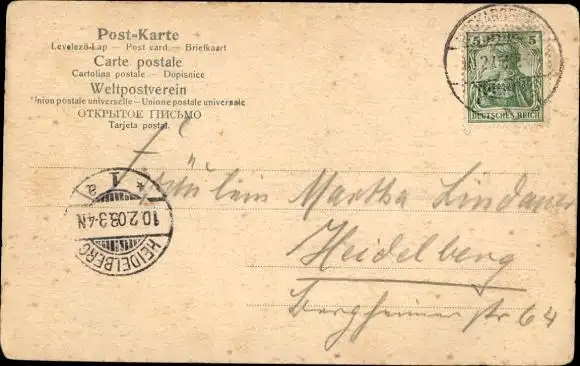 Post-Karte
Levelező-Lap — Post card. — Briefkaart
Carte postale
Cartolina postale — Dopisnice
Weltpostverein
Union postale universelle — Unione postale universale
ОТКРЫТОЕ ПИСЬМО
Tarjeta postal.
5 5
DEUTSCHES REICH
Fräulein Martha Lindauer
Heidelberg
Bergheimer str 64
1 a
10.2.03.3-4N
HEIDELBERG